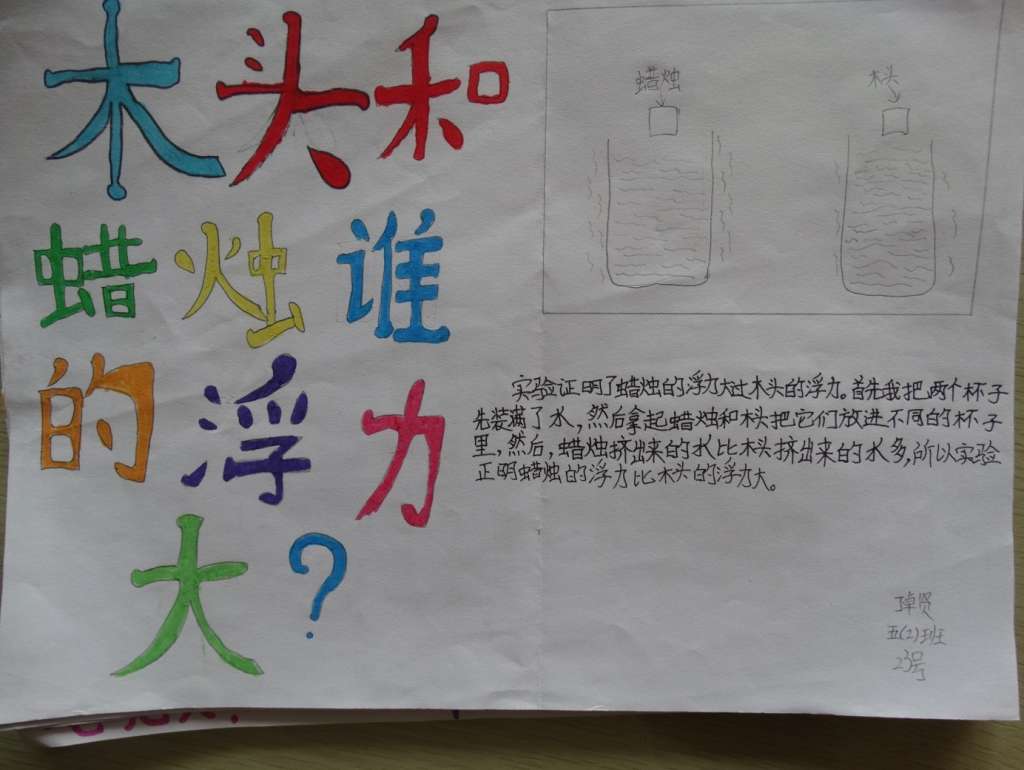 木头和
蜡烛谁
的浮力
大?
蜡烛
木头
实验证明了蜡烛的浮力大过木头的浮力。首先我把两个杯子
先装满了水,然后拿起蜡烛和木头把它们放进不同的杯子
里,然后,蜡烛挤出来的水比木头挤出来的水多,所以实验
正明蜡烛的浮力比木头的浮力大。
丁卓贤
五(2)班
23号